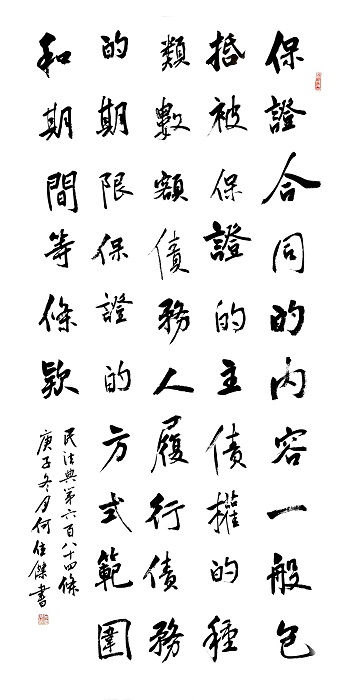 保證合同的內容一般包
括被保證的主債權的種
類數額債務人履行債務
的期限保證的方式範圍
和期間等條款
民法典第六百八十四條
庚子冬月何佳傑書